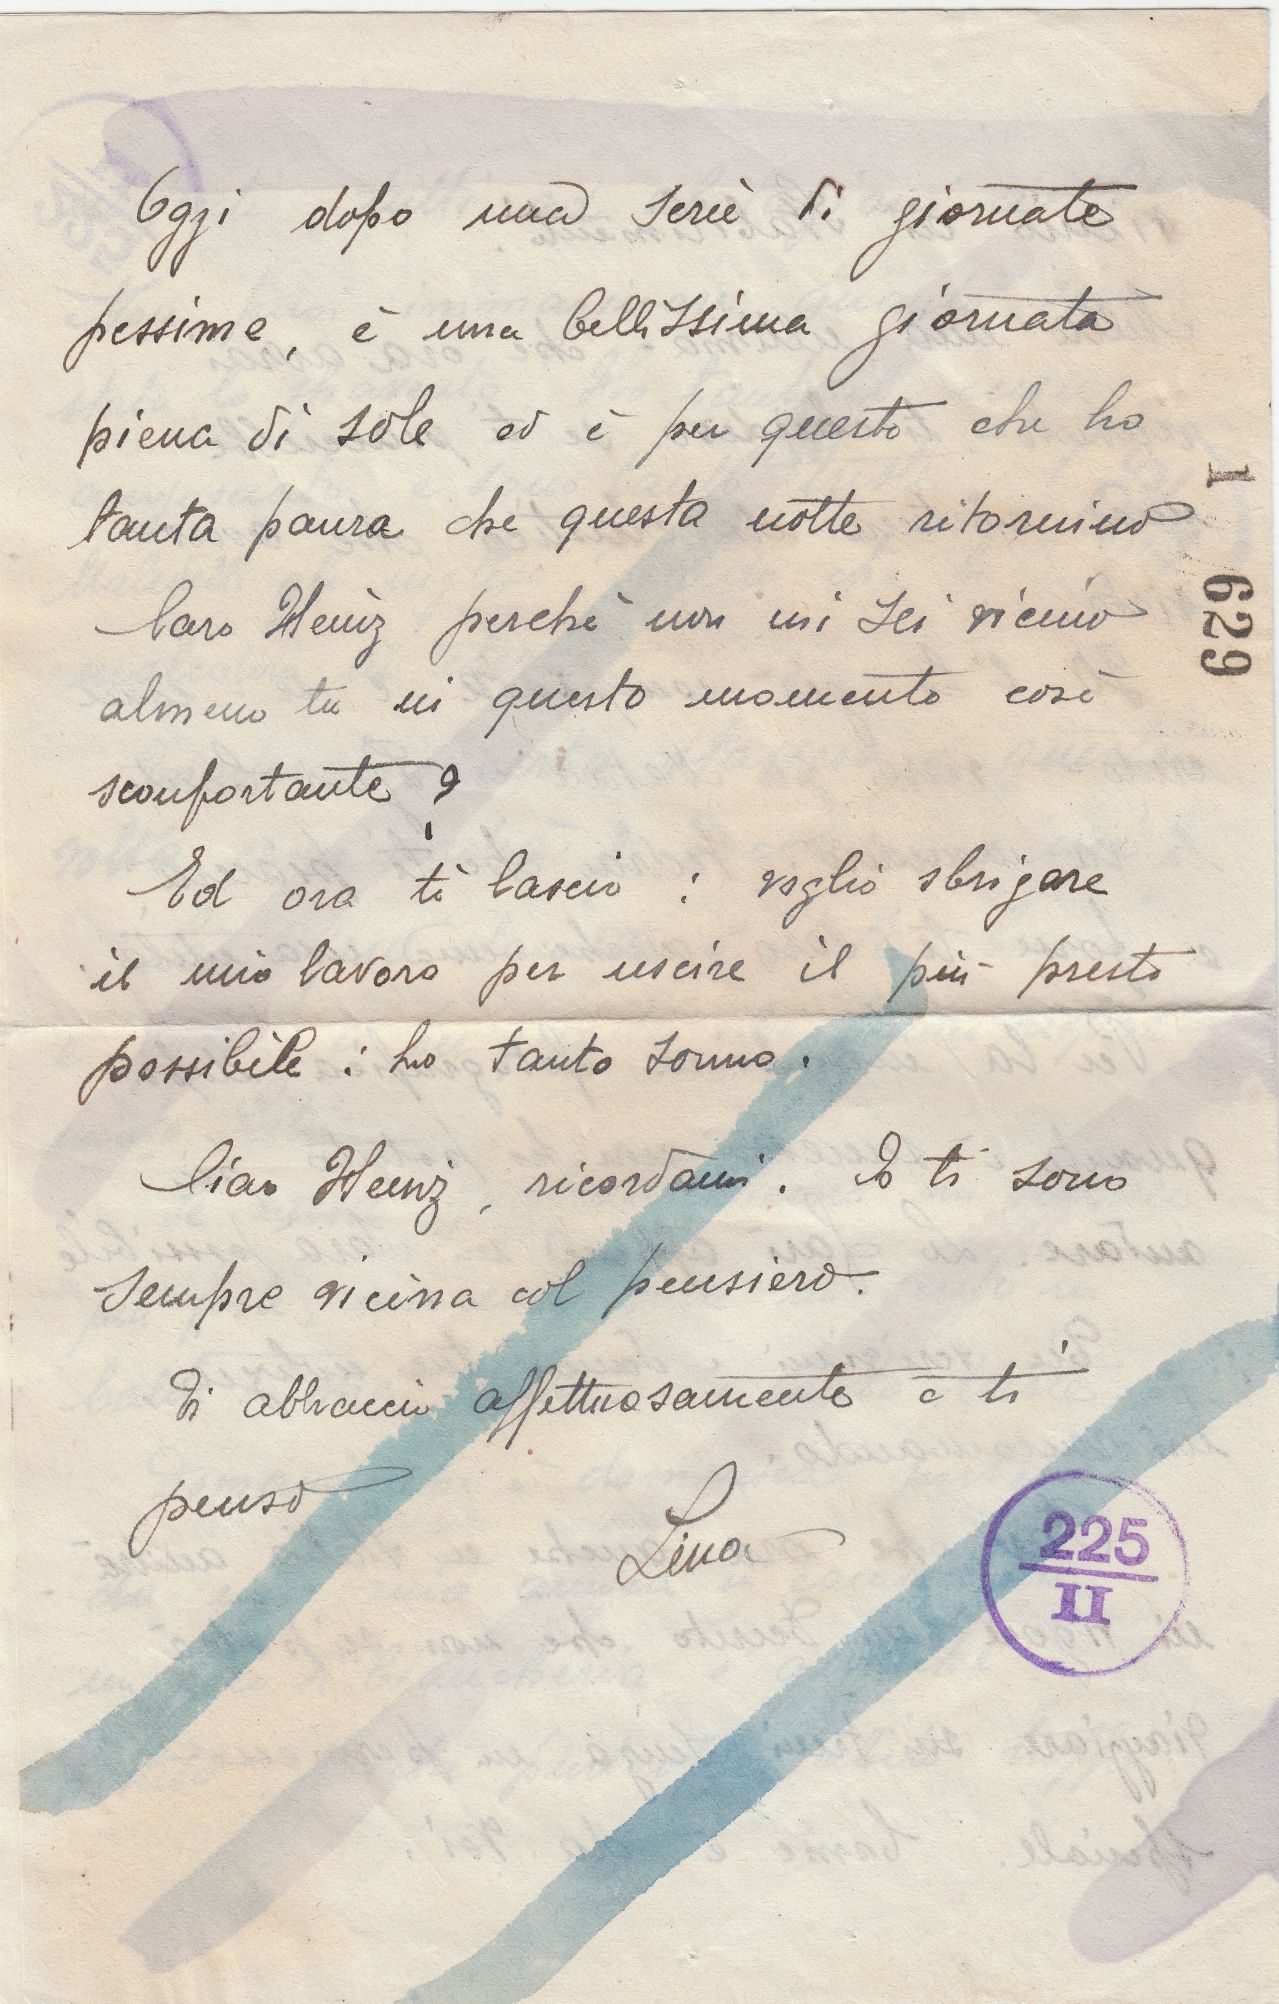 Oggi dopo una serie di giornate
pessime, è una bellissima giornata
piena di sole ed è per questo che ho
tanta paura che questa notte ritornino
Caro Heinz perchè non mi sei vicino
almeno tu in questo momento così
sconfortante?
Ed ora ti lascio: voglio sbrigare
il mio lavoro per uscire il più presto
possibile: ho tanto sonno.
Ciao Heinz, ricordami. Io ti sono
sempre vicina col pensiero.
Ti abbraccio affettuosamente e ti
penso
Lina
1 629
225
II